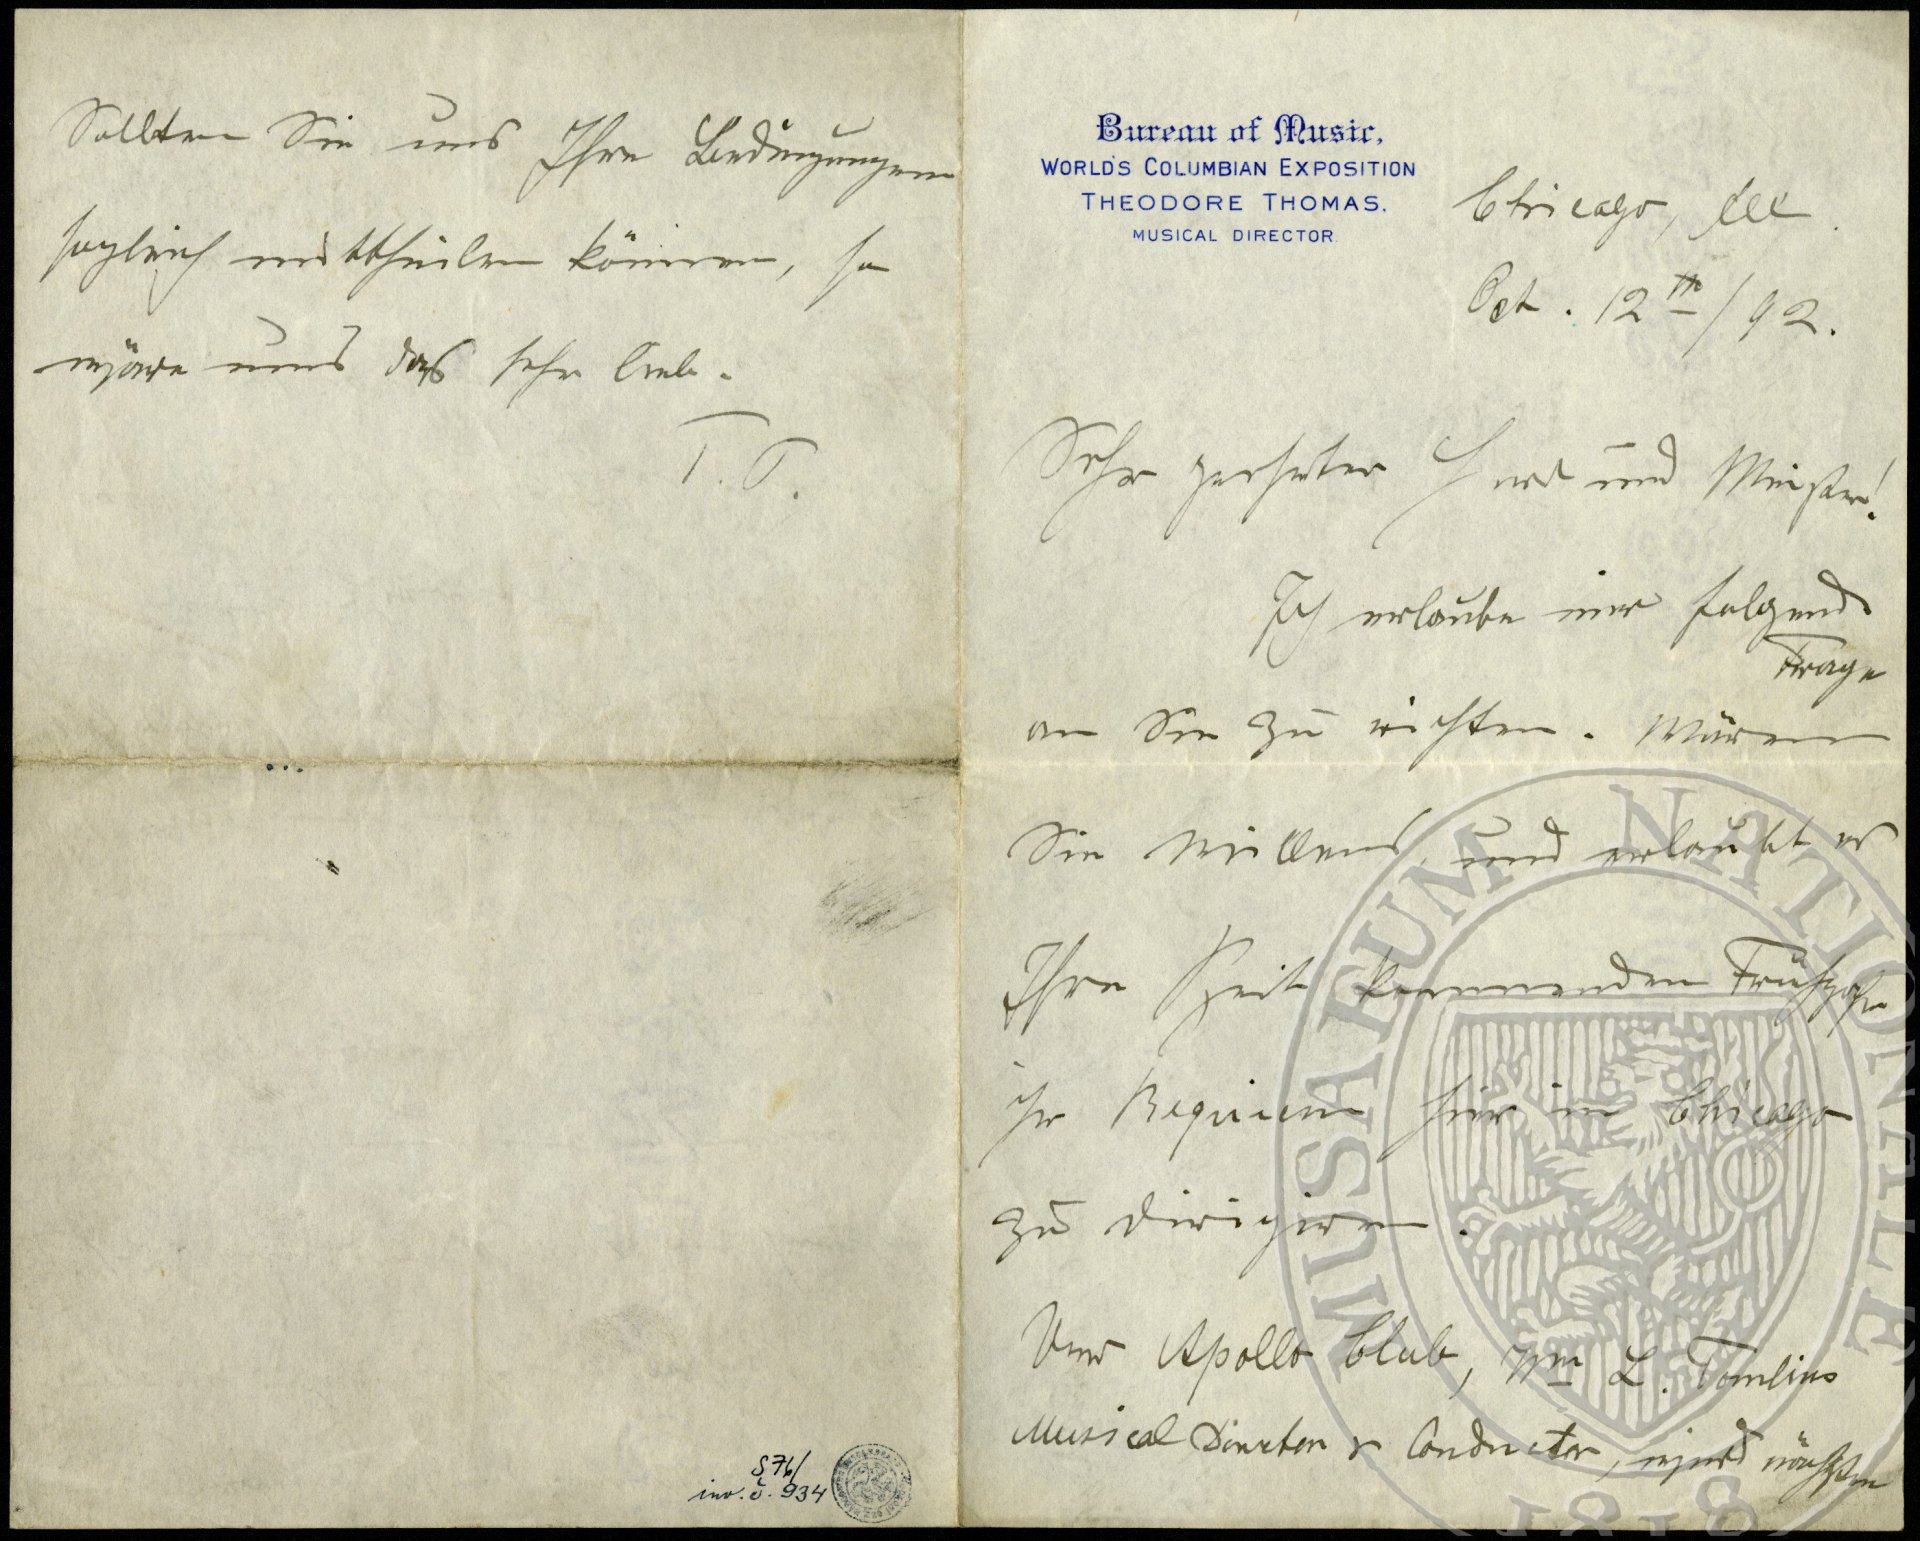 Bureau of Music,
WORLD'S COLUMBIAN EXPOSITION
THEODORE THOMAS.
MUSICAL DIRECTOR.
Chicago, Ill.
Oct. 12th/92.
Sehr geehrter Herr und Meister!
Ich erlaube mir folgende
Frage
an Sie zu richten. Wären
Sie willens, und erlaubt es
Ihre Zeit kommenden Frühjahr
ihr Requiem hier in Chicago
zu dirigiren.
Der Apollo Club, Wm L. Tomlins
Musical Director & Conductor, wird nächsten
Sollten Sie uns Ihre Bedingungen
sogleich mittheilen können, so
wäre uns das sehr lieb.
T. T.
S 76/
inv. č. 934
MUSAEUM NATIONALE
1818